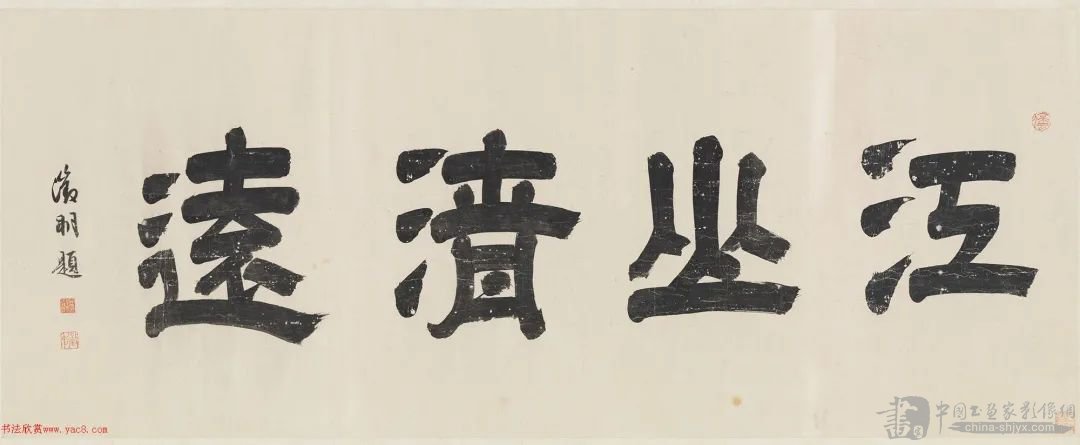 江山清遠
徵明題
书法欣赏www.yac8.com
書
中國书画家影像網
china-shjyx.com